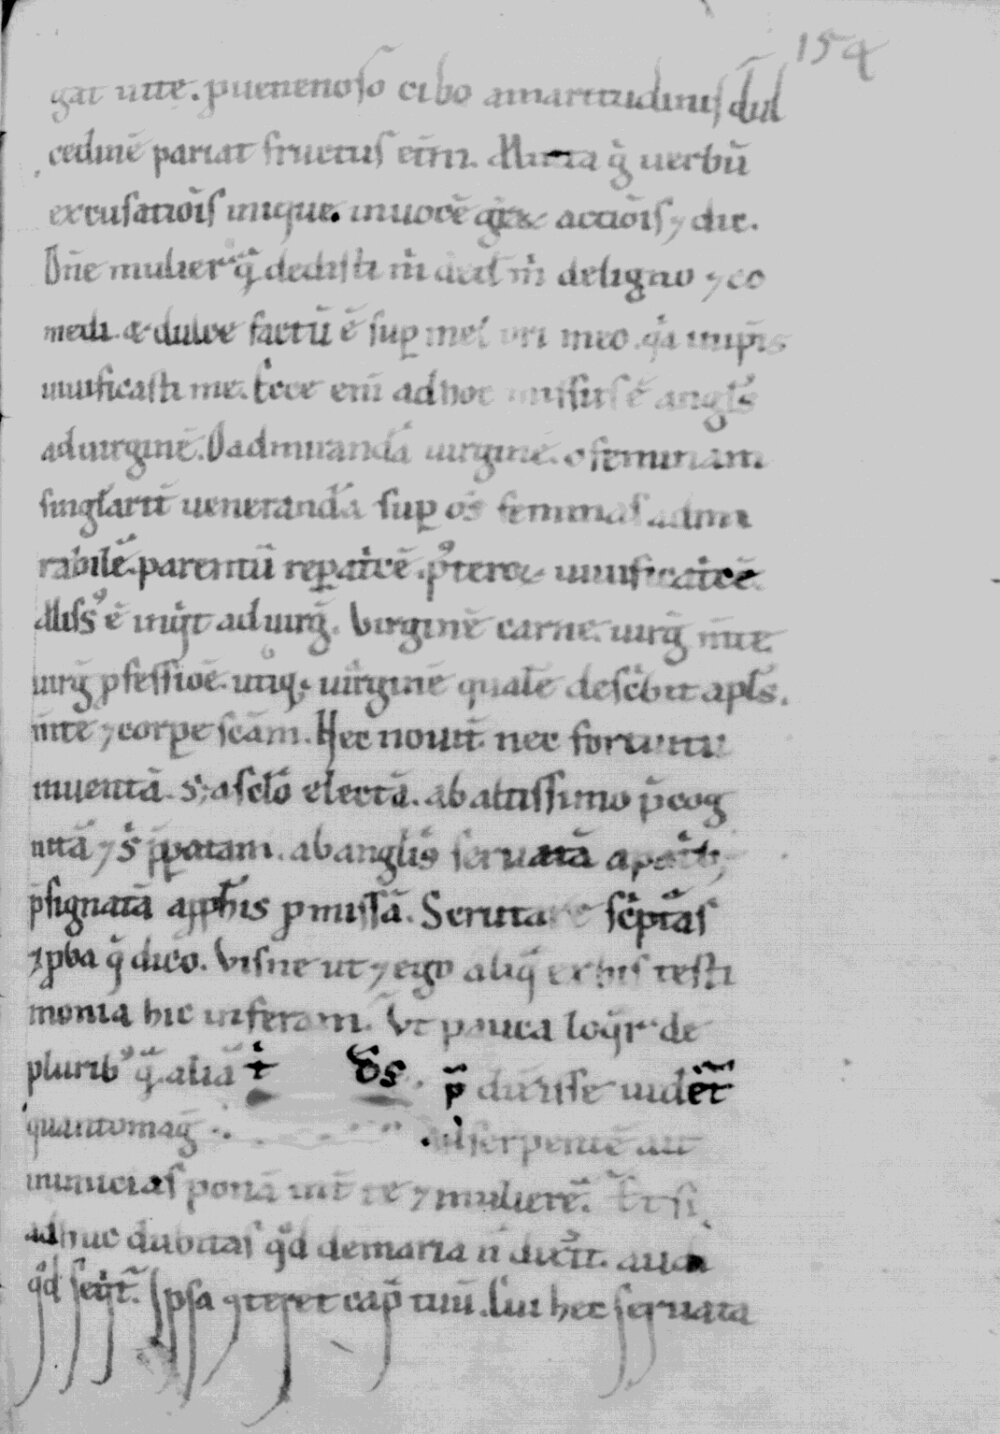 154
gat uite. p uenenoso cibo amaritudinis dul
cedinē pariat fructus et̄ni. Muta g̊ uerbū
excusatiōis iniquę. in uocē gr̄ax actiōis ⁊ dic.
Dn̄e mulier q̄ dedisti m̊ ded̄ m̊ de ligno ⁊ co
medi. & dulce factū ē suꝑ mel ori meo. q̊a in ip̄is
uiuificasti me. Ecce eni ad hoc missus ē angl̄s
ad uirginē. O admirandā uirginē. o feminam
singl̄arit̄ uenerandā suꝑ oēs feminas admi
rabilē. parentū reꝑat̊cē. p̾teroꝝ uiuificat̊cē.
Miss̾ ē inq̊t ad uirḡ. Virginē carne. uirḡ m̄te.
uirḡ ꝓfessiōe. uirginē qualē desc̊bit apl̄s.
m̄te ⁊ corꝑe sc̄am. Nec nouit̄. nec fortuitu
inuentā. s; a sclō electā. ab altissimo p̄cog
nitā ⁊ s̊ p̄paratam. ab angl̄is seruatā a pat̊b;
p̄signatā a ꝓph̄is ꝓmissā. Scrutare sc̊pt̄as
⁊ ꝓba q̄ dico. Visne ut ⁊ ego aliq̄ ex his testi
monia hic inferam. Vt pauca loq̊r de
plurib̾ q̄. aliā t̊ ds̄. p̄dix̄isse uidet̄
quanto mag̊ ad serpentē ait
inimicias ponā int̄ te ⁊ mulierē. Et si
adhuc dubitas q̊d de maria n̄ dix̄it. audi
q̊d seq̊t̄. Ipsa ꝯteret cap̄ tuū. Cui hec seruata